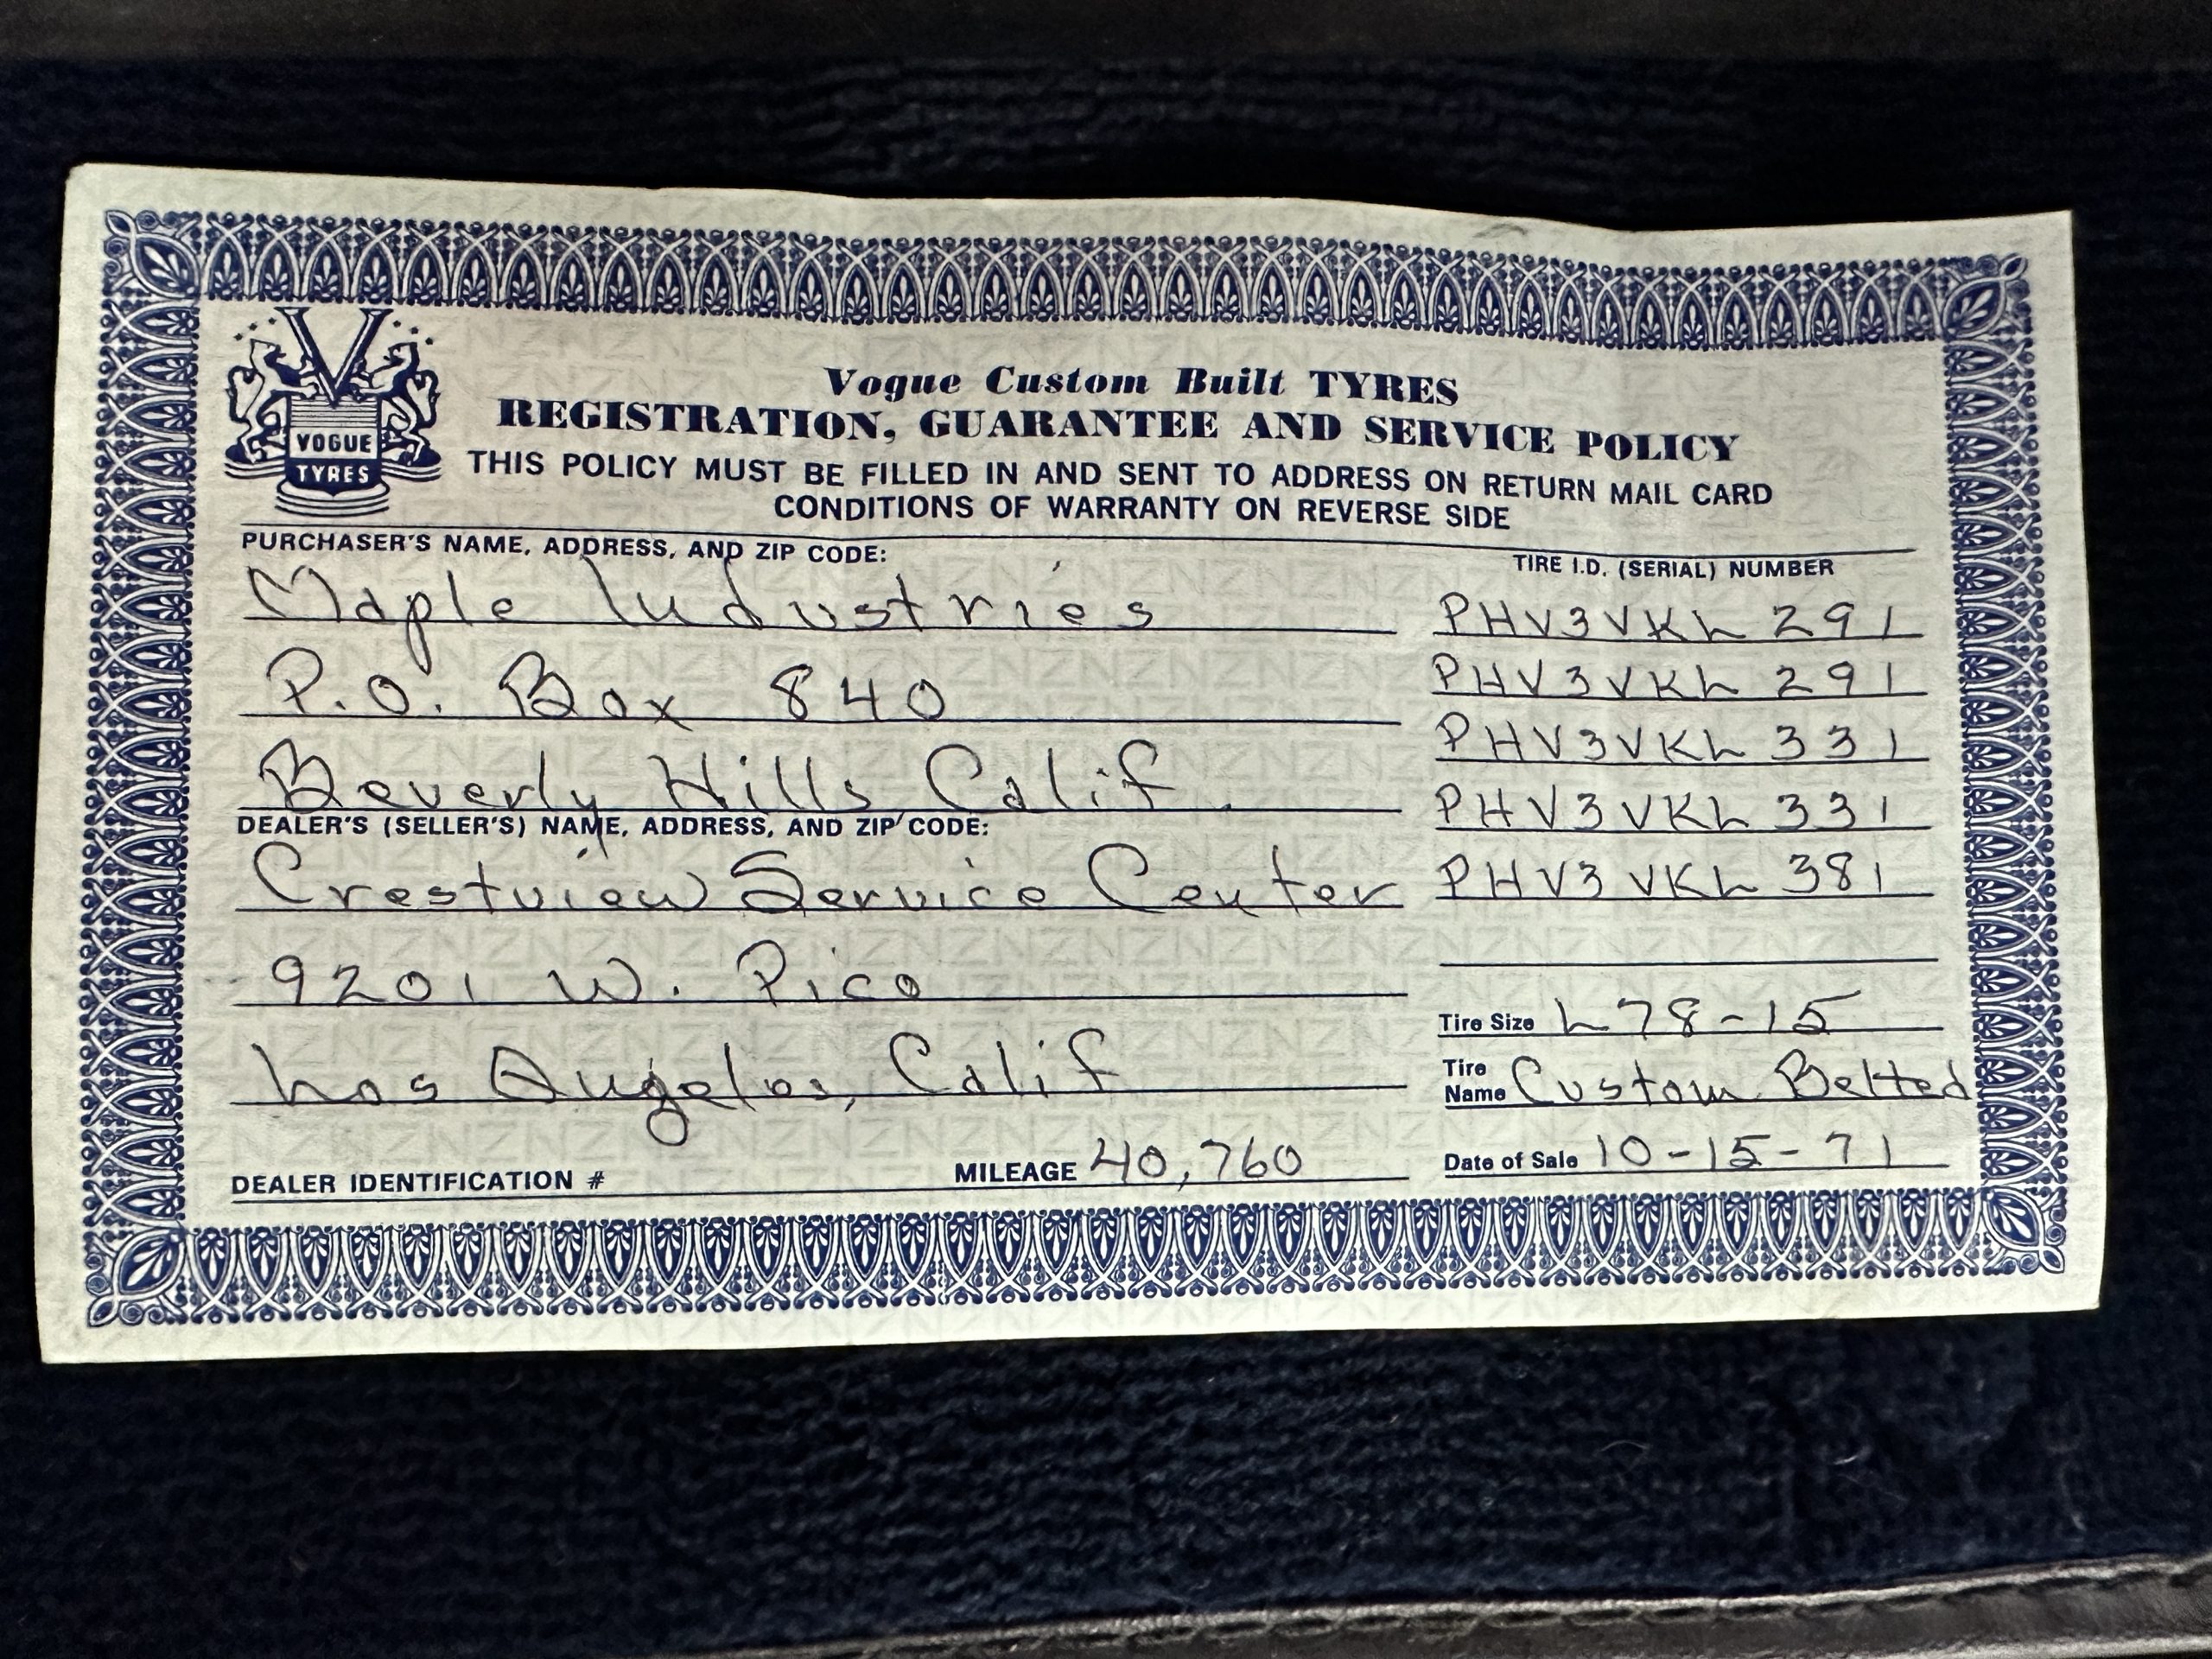 VOGUE
TYRES
Vogue Custom Built TYRES
REGISTRATION, GUARANTEE AND SERVICE POLICY
THIS POLICY MUST BE FILLED IN AND SENT TO ADDRESS ON RETURN MAIL CARD
CONDITIONS OF WARRANTY ON REVERSE SIDE
PURCHASER'S NAME, ADDRESS, AND ZIP CODE:
Maple Industries
P.O. Box 840
Beverly Hills, Calif.
DEALER'S (SELLER'S) NAME, ADDRESS, AND ZIP CODE:
Crestview Service Center
9201 W. Pico
Los Angeles, Calif
DEALER IDENTIFICATION #
MILEAGE 40,760
TIRE I.D. (SERIAL) NUMBER
PHV3VKL 291
PHV3VKL 291
PHV3VKL 331
PHV3VKL 331
PHV3VKL 381
Tire Size L78-15
Tire
Name Custom Belted
Date of Sale 10-15-71